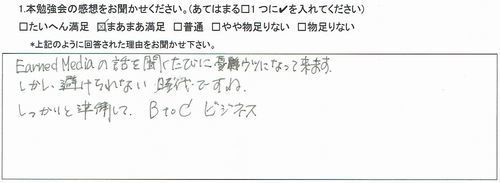 1.本勉強会の感想をお聞かせください。(あてはまる□1つに✔を入れてください)
□たいへん満足 ☒まあまあ満足 □普通 □やや物足りない □物足りない
*上記のように回答された理由をお聞かせ下さい。
Earned Mediaの話を聞くたびにウツになって来ます.
しかし避けられない時代ですね.
しっかりと準備して. BtoC ビジネス